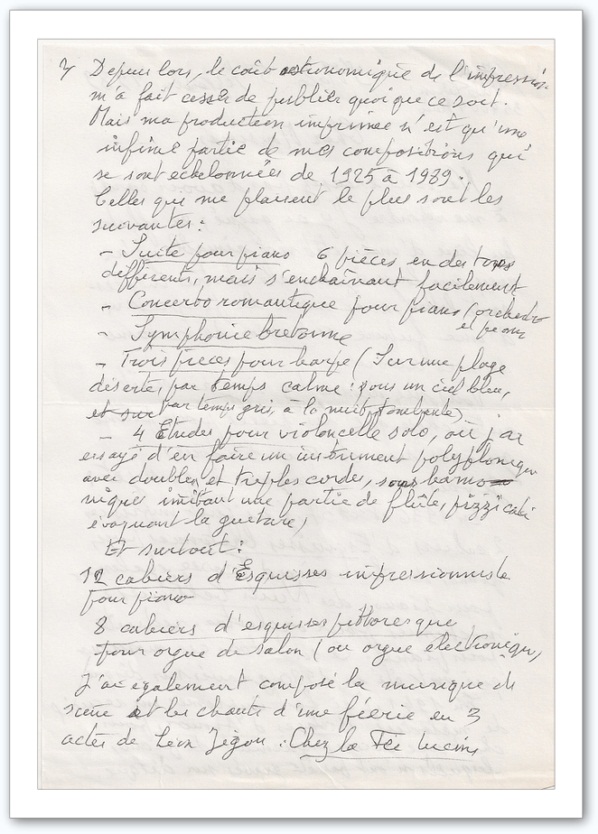 Depuis lors, le coût astronomique de l'impression
m'a fait cesser de publier quoi que ce soit.
Mais ma production imprimée n'est qu'une
infime partie de mes compositions qui
se sont echelonnées de 1925 à 1989.
Celles que me plaisent le plus sont les
suivantes :
- Suite pour piano 6 pièces en des tons
différents, mais s'enchaînant facilement
- Concerto romantique pour piano (orchestre
et piano
- Symphonie bretonne
- Trois pièces pour harpe (Sur une plage
déserte, par temps calme : sous un ciel bleu,
et sur par temps gris, à la nuit tombante)
- 4 Etudes pour violoncelle solo, où j'ai
essayé d'en faire un instrument polyphonique
avec doubles et triples cordes, sons harmo
niques imitant une partie de flûte, pizzicati
évoquant la guitare)
Et surtout :
12 cahiers d'Esquisses impressionniste
pour piano
8 cahiers d'esquisses pittoresque
pour orgue de salon (ou orgue électronique)
J'ai également composé la musique de
scène et les chants d'une féerie en 3
actes de Léon : Chez la Fée